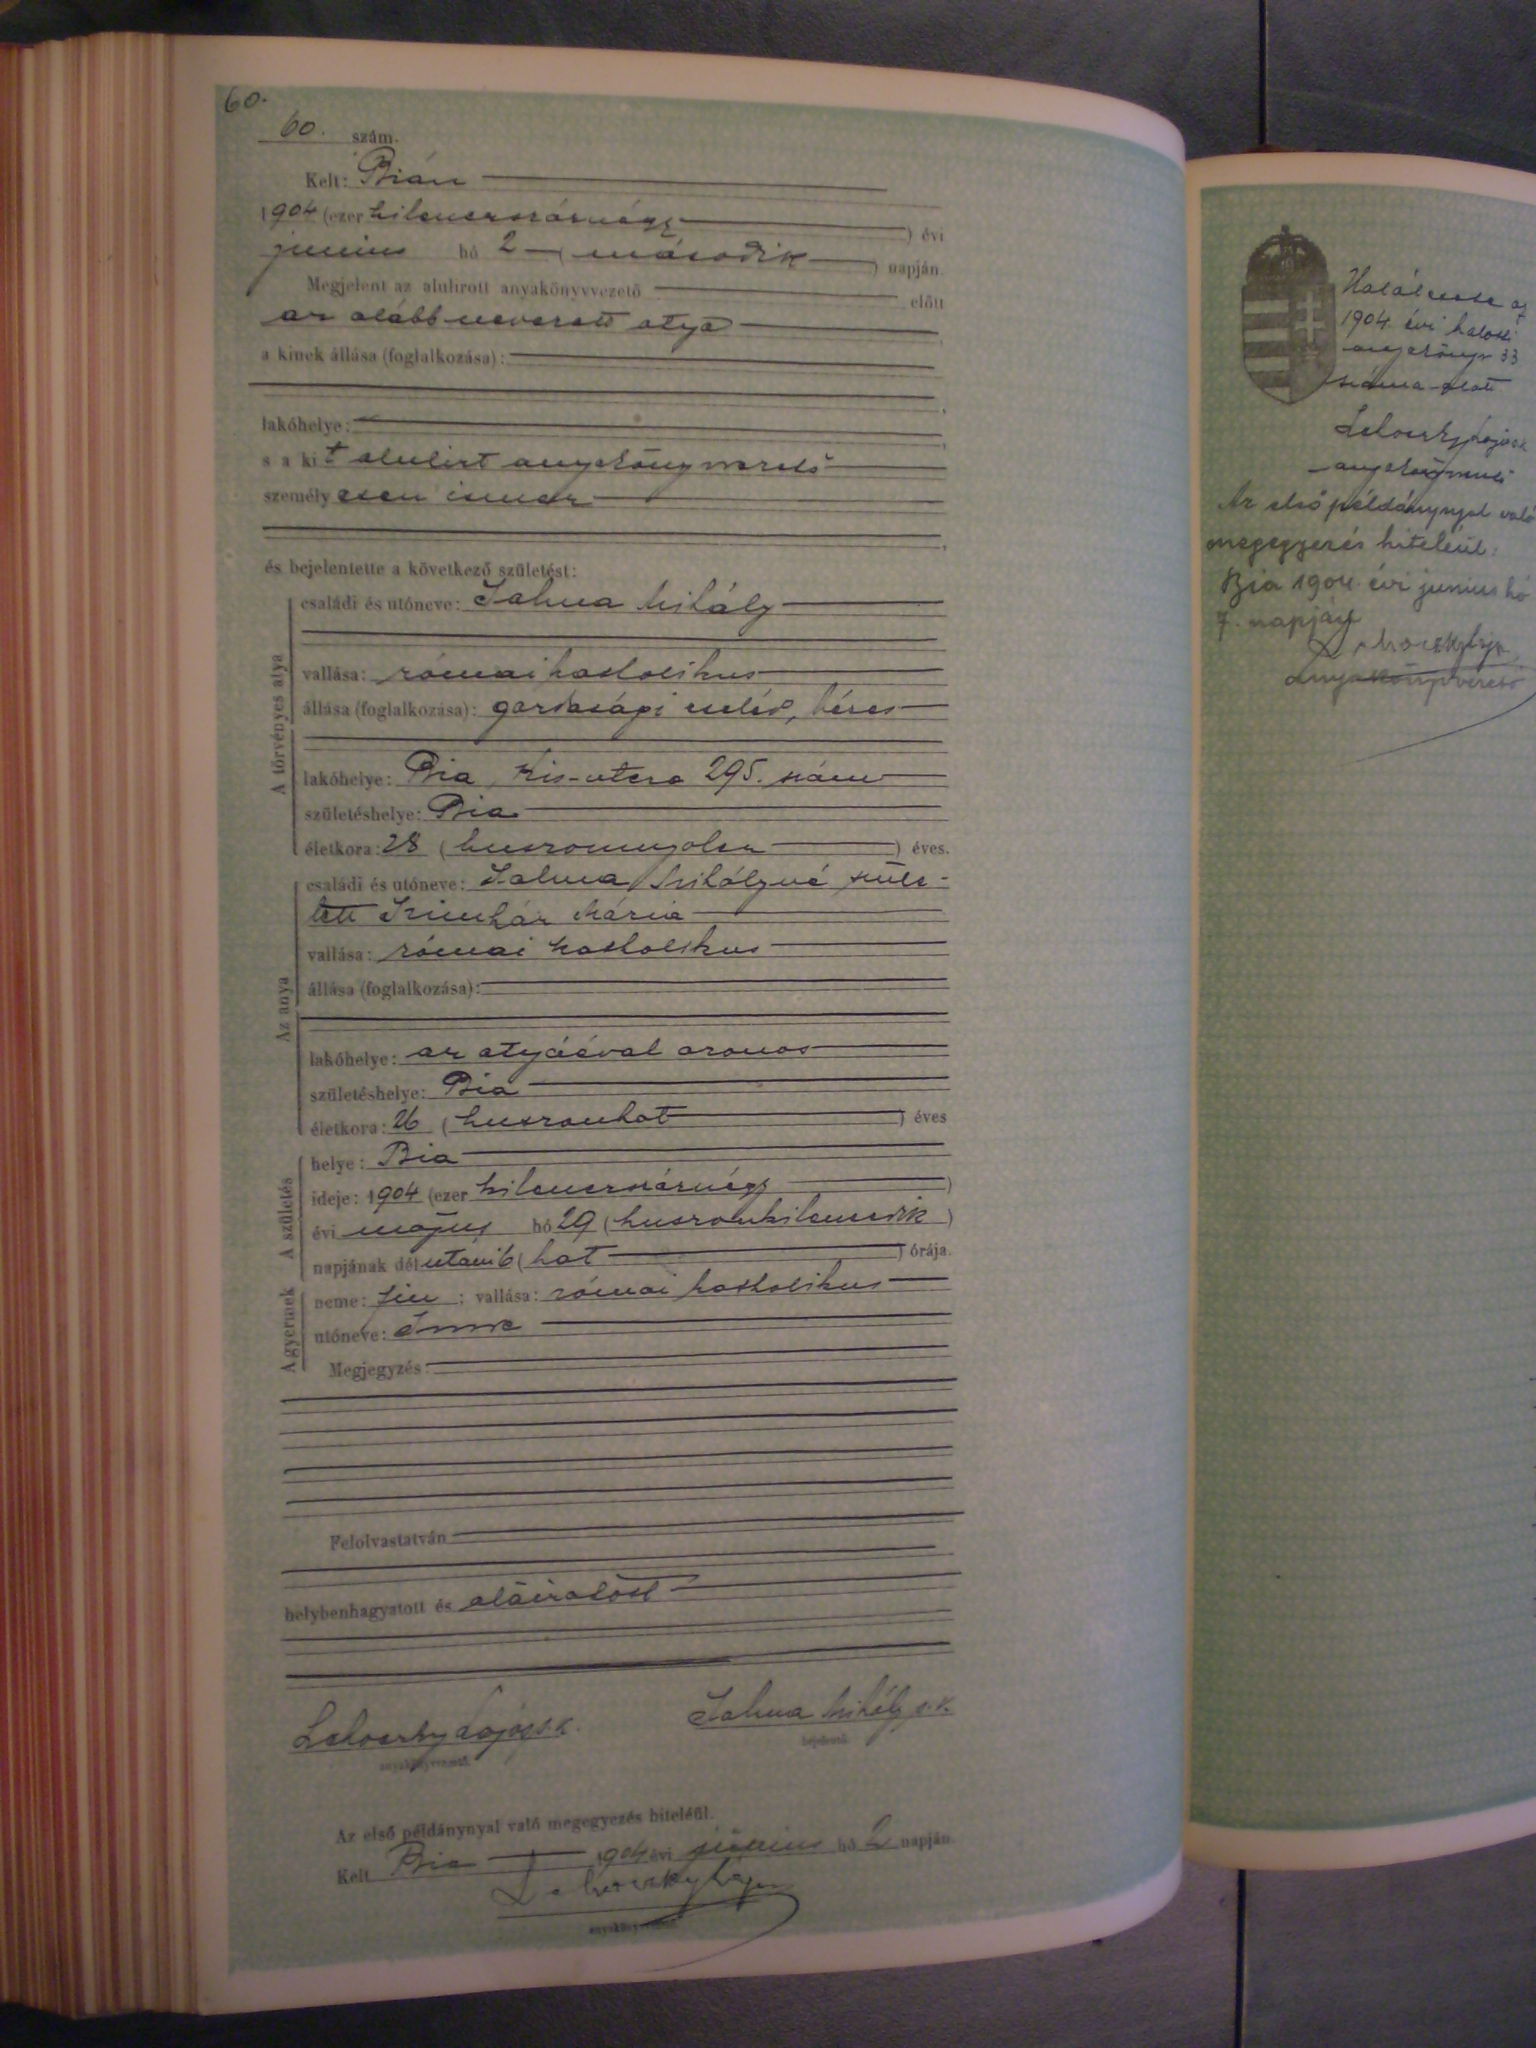 60.
60. szám.
Kelt: Bián
1904 (ezer kilencszáznégy) évi
junius hó 2 (második) napján.
Megjelent az alulirott anyakönyvvezető előtt
az alább nevezett atya
a kinek állása (foglalkozása):
lakóhelye:
s a kit alulirt anyakönyvvezető
személyesen ismer
és bejelentette a következő születést:
A törvényes atya
családi és utóneve: Mihály
vallása: római katholikus
állása (foglalkozása): gazdasági cseléd, béres
lakóhelye: Bia, Kis-utcza 295. szám
születéshelye: Bia
életkora: 28 (huszonnyolcz) éves.
Az anya
családi és utóneve: Mihályné szüle-
tett Mária
vallása: római katholikus
állása (foglalkozása):
lakóhelye: az atyáéval azonos
születéshelye: Bia
életkora: 26 (huszonhat) éves
A születés
helye: Bia
ideje: 1904 (ezer kilencszáznégy)
évi május hó 29 (huszonkilenczedik)
napjának délutáni 6 (hat) órája.
A gyermek
neme: fiu; vallása: római katholikus
utóneve: Imre
Megjegyzés:
Felolvastatván
helybenhagyatott és aláiratott
Lehoczky Lajos s.k.
anyakönyvvezető.
Mihály s.k.
bejelentő.
Az első példánynyal való megegyezés hiteléül.
Kelt Bia 1904 évi junius hó 2 napján.
Lehoczky Lajos
anyakönyvvezető.
Halálesete az
1904. évi halotti
anyakönyv 33
száma alatt
Lehoczky Lajos s.k.
anyakönyvvezető
Az első példánynyal való
megegyezés hiteléül:
Bia 1904. évi junius hó
7. napján
Lehoczky Lajos
anyakönyvvezető